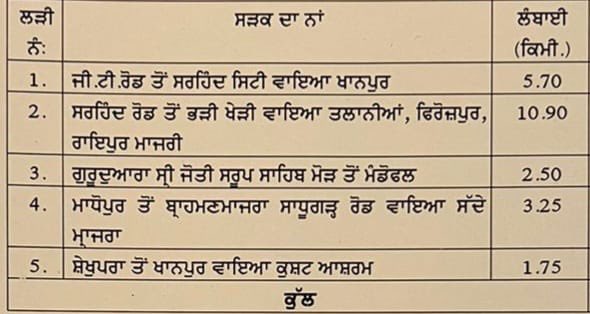 ਲੜੀ ਨੰ: ਸੜਕ ਦਾ ਨਾਂ ਲੰਬਾਈ (ਕਿਮੀ.)
1. ਜੀ.ਟੀ.ਰੋਡ ਤੋਂ ਸਰਹਿੰਦ ਸਿਟੀ ਵਾਇਆ ਖਾਨਪੁਰ 5.70
2. ਸਰਹਿੰਦ ਰੋਡ ਤੋਂ ਭੜੀ ਖੇੜੀ ਵਾਇਆ ਤਲਾਨੀਆਂ, ਫਿਰੋਜ਼ਪੁਰ, 10.90
ਰਾਇਪੁਰ ਮਾਜਰੀ
3. ਗੁਰੂਦੁਆਰਾ ਸ੍ਰੀ ਜੋਤੀ ਸਰੂਪ ਸਾਹਿਬ ਮੋੜ ਤੋਂ ਮੰਡੋਫਲ 2.50
4. ਮਾਧੋਪੁਰ ਤੋਂ ਬ੍ਰਾਹਮਣਮਾਜਰਾ ਸਾਧੂਗੜ੍ਹ ਰੋਡ ਵਾਇਆ ਸੱਦੇ 3.25
ਮਾਜਰਾ
5. ਸ਼ੇਖੂਪਰਾ ਤੋਂ ਖਾਨਪੁਰ ਵਾਇਆ ਕੁਸ਼ਟ ਆਸ਼ਰਮ 1.75
ਕੁੱਲ